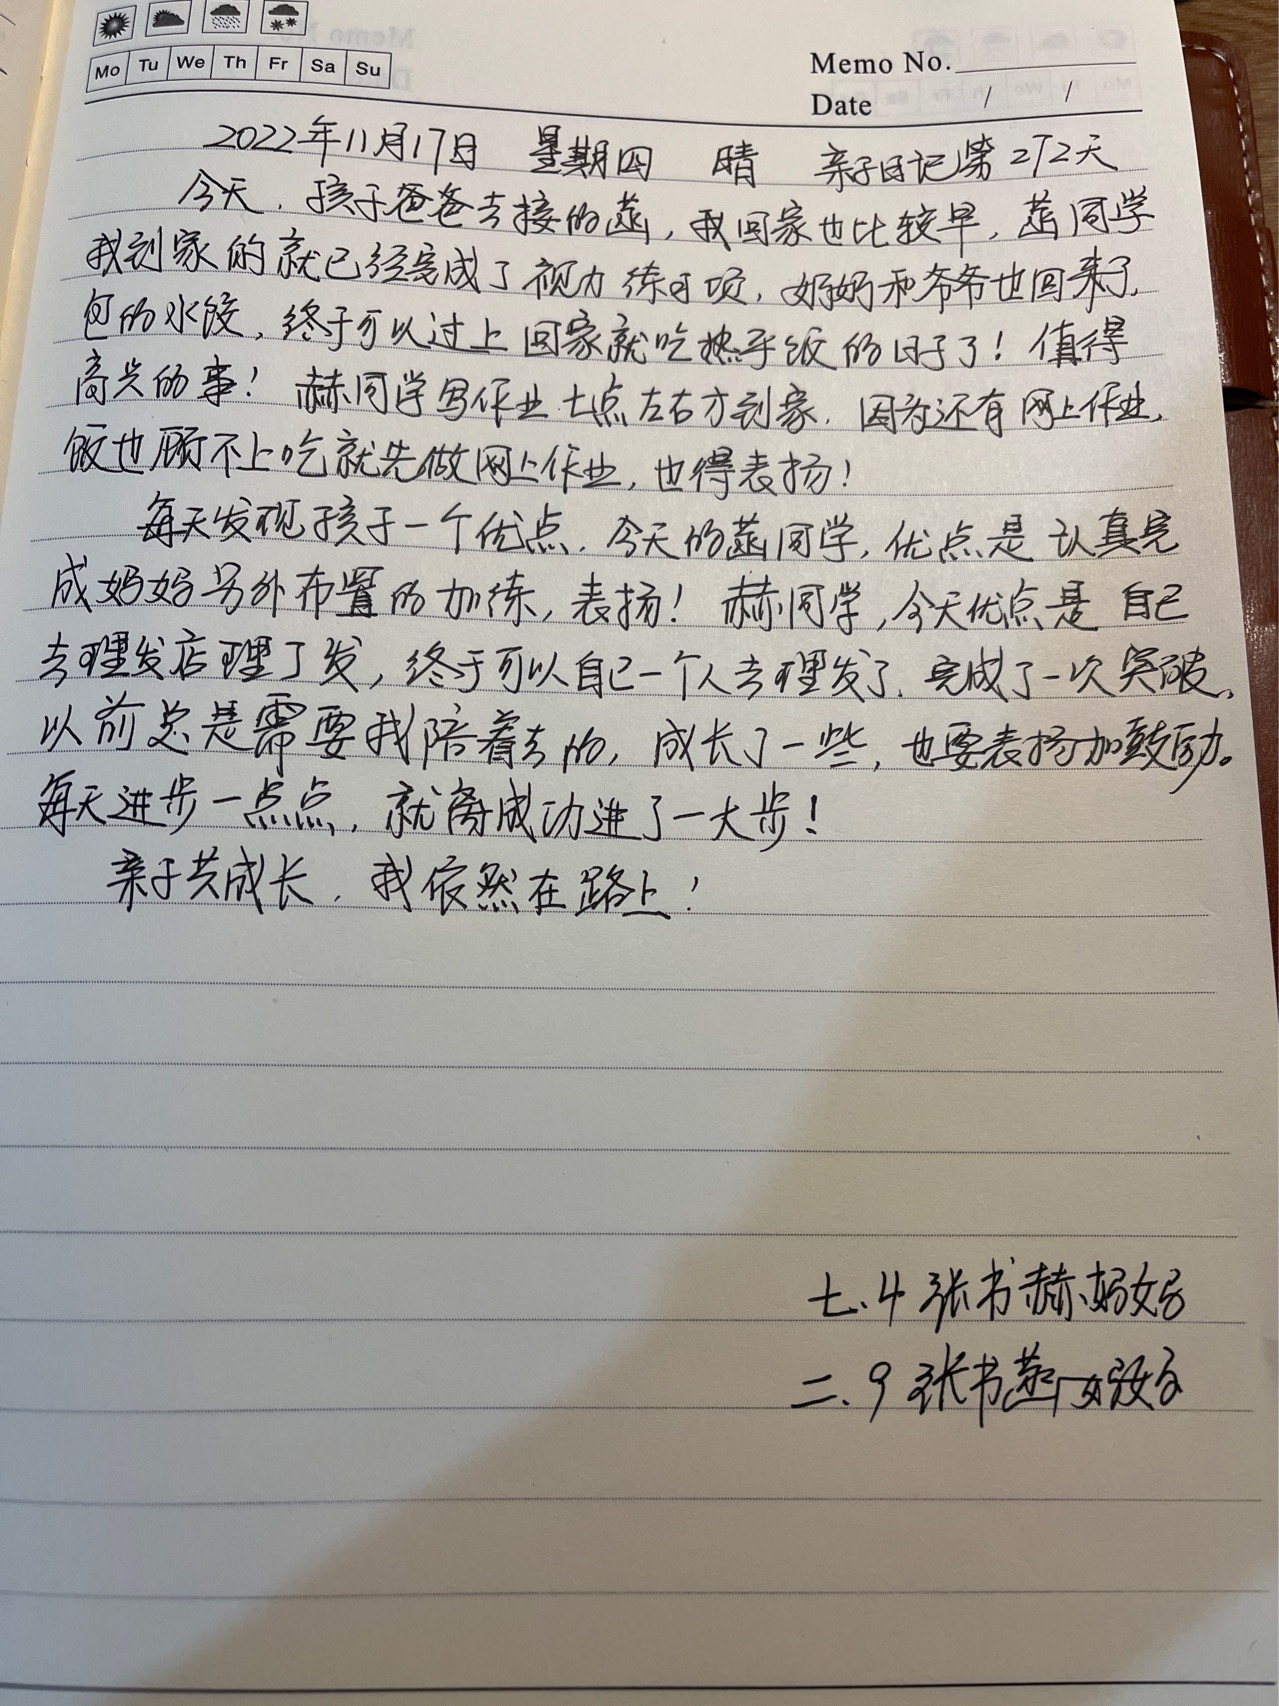 Mo Tu We Th Fr Sa Su
Memo No.
Date / /
2022年11月17日 星期四 晴 亲子日记第272天
今天，孩子爸爸去接的菡，我回家也比较早，菡同学
我到家的就已经完成了视力练习项，奶奶和爷爷也回来了，
包的水饺，终于可以过上回家就吃热乎饭的日子了！值得
高兴的事！赫同学写作业七点左右才到家，因为还有网上作业，
饭也顾不上吃就先做网上作业，也得表扬！
每天发现孩子一个优点，今天的菡同学，优点是认真完
成妈妈另外布置的加练，表扬！赫同学，今天优点是自己
去理发店理了发，终于可以自己一个人去理发了，完成了一次突破，
以前总是需要我陪着去的，成长了一些，也要表扬加鼓励。
每天进步一点点，就离成功进了一大步！
亲子共成长，我依然在路上！
七.4 张书赫妈妈
二.9 张书菡妈妈